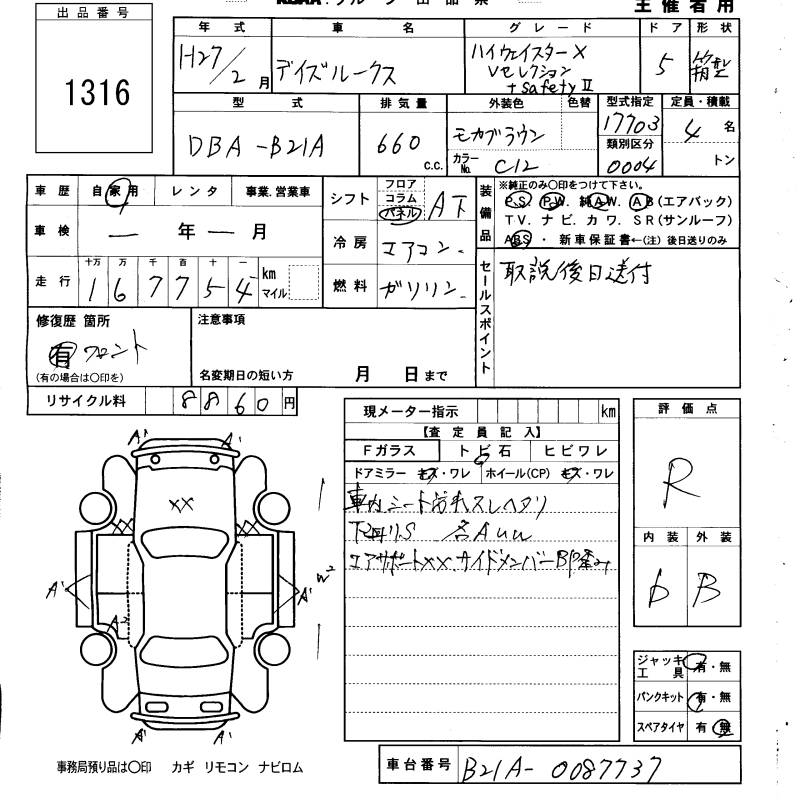 出品番号
1316
主催者用
年式 車名 グレード ドア 形状
H27/2月 デイズルークス ハイウェイスターX Vセレクション +safetyⅡ 5 箱型
型式 排気量 外装色 色替 型式指定 定員・積載
DBA-B21A 660 c.c. モカブラウン 17703 4名
カラーNo. C12 類別区分 0004 トン
車歴 自家用 レンタ 事業.営業車
車検 ― 年 ― 月
走行 十万 万 千 百 十 一
1 6 7 7 5 4 km マイル
シフト フロア コラム パネル AT
冷房 エアコン.
燃料 ガソリン.
装備品 ※純正のみ○印をつけて下さい。
P.S. P.W. 純A.W. A.B(エアバック)
T.V. ナビ. カワ. S.R(サンルーフ)
ABS ・ 新車保証書←(注) 後日送りのみ
セールスポイント 取説後日送付
修復歴 箇所
有 フロント
(有の場合は○印を)
注意事項
名変期日の短い方 月 日まで
リサイクル料 8860円
現メーター指示 km
【査定員記入】
Fガラス トビ石 ヒビワレ
ドアミラー キズ・ワレ ホイール(CP) キズ・ワレ
車内シート汚れスレヘタリ
下回りS 各AUU
エアサポートXX.サイドメンバーBP歪み
評価点
R
内装 外装
D B
A' A'
XX
A' A²
A' W²
A' A'
ジャッキ工具 有・無
パンクキット 有・無
スペアタイヤ 有・無
事務局預り品は○印 カギ リモコン ナビロム
車台番号 B21A-0087737